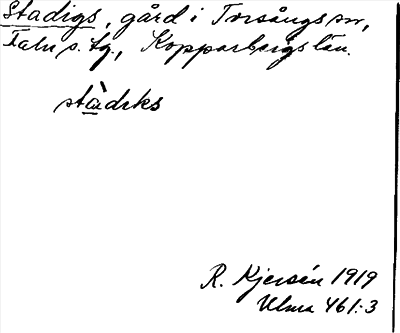 Stadigs, gård i Torsångs sn,
Falu s. tg., Kopparbergs län.
stàdıks
R. Kjersén 1919
Ulma 461:3